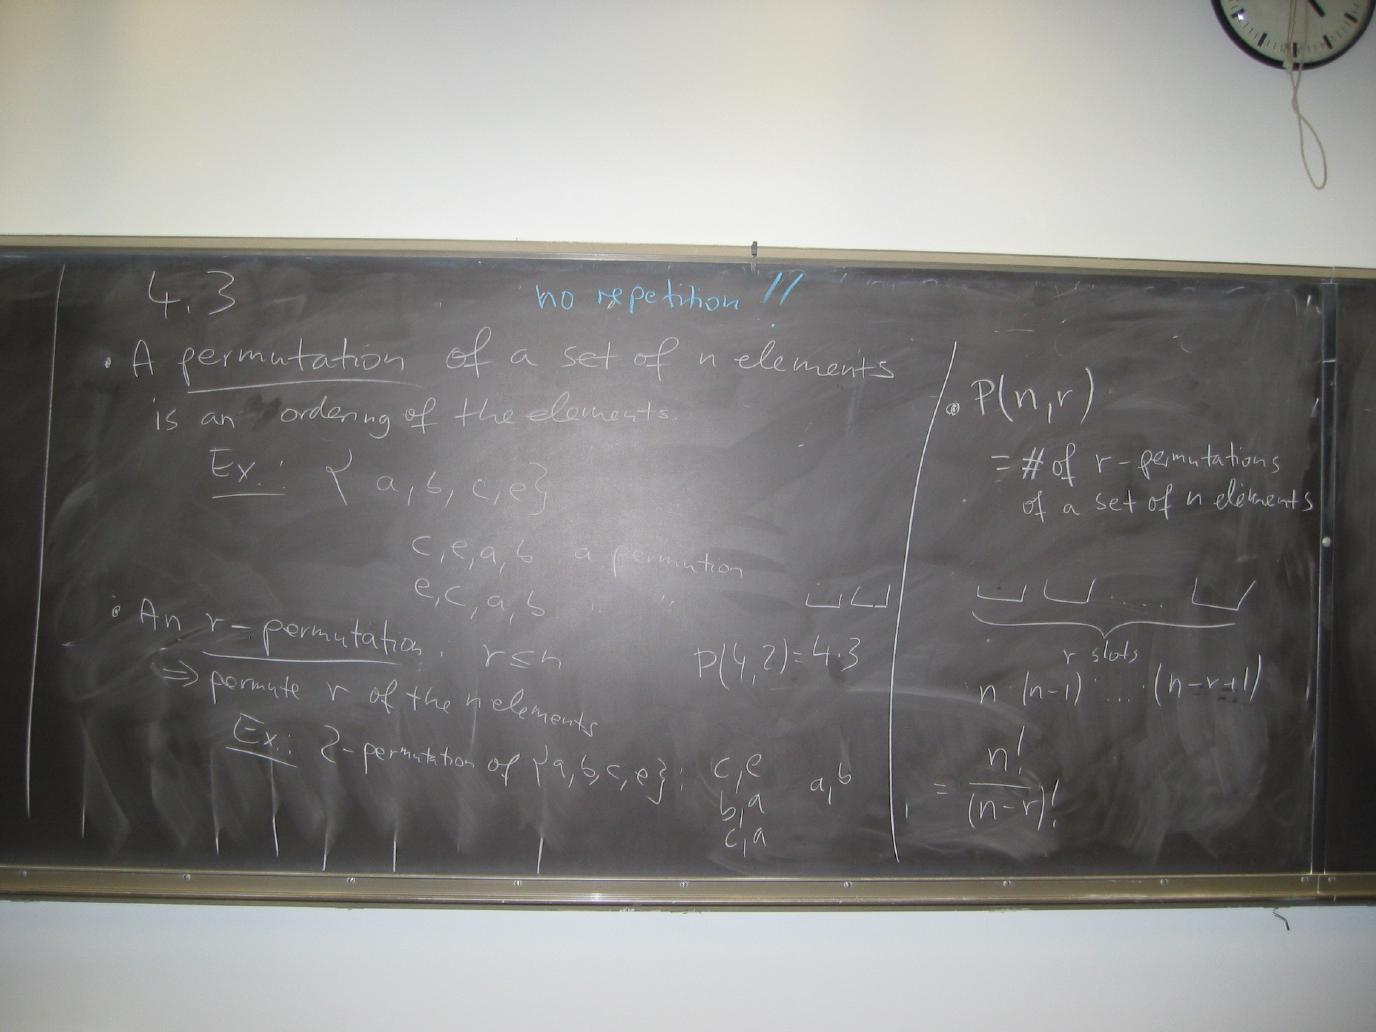 4.3
no repetition!!
• A permutation of a set of n elements
is an ordering of the elements.
Ex.: {a, b, c, e}
c, e, a, b a permution
e, c, a, b " "
• An r-permutation. r ≤ n
⇒ permute r of the n elements
P(4,2) = 4·3
Ex.: 2-permutation of {a, b, c, e}: c, e a, b
b, a
c, a
• P(n,r)
= # of r-permutations
of a set of n elements
.....
r slots
n · (n-1) · ... · (n-r+1)
= n!/(n-r)!